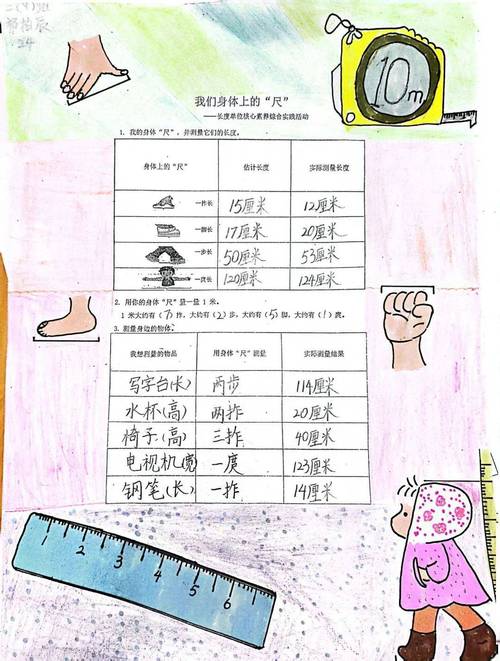 二(4)班
24
10m
我们身体上的“尺”
——长度单位核心素养综合实践活动
1. 我的身体“尺”，并测量它们的长度。
身体上的“尺” 估计长度 实际测量长度
一拃长 15厘米 12厘米
一脚长 17厘米 20厘米
一步长 50厘米 53厘米
一庹长 120厘米 124厘米
2. 用你的身体“尺”量一量 1 米。
1 米大约有(7)拃，大约有(2)步，大约有(5)脚，大约有(1)庹。
3. 测量身边的物体。
我想测量的物品 用身体“尺”测量 实际测量结果
写字台(长) 两步 114厘米
水杯(高) 两拃 20厘米
椅子(高) 三拃 40厘米
电视机(宽) 一度 123厘米
钢笔(长) 一拃 14厘米
1 2 3 4 5 6